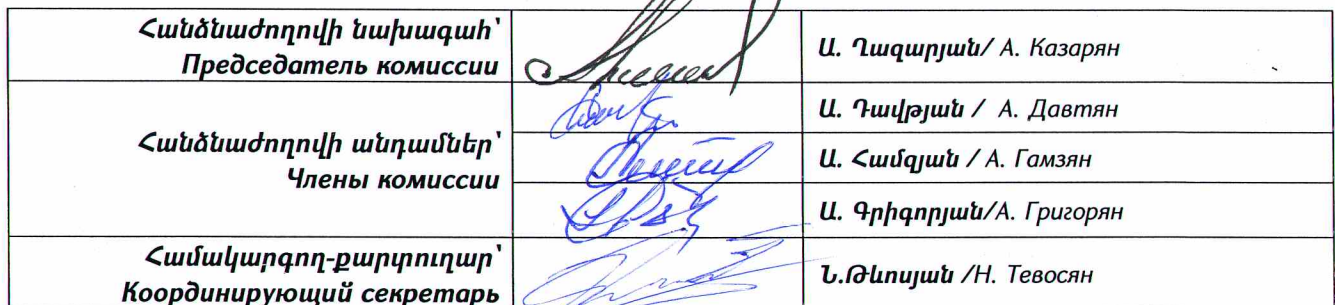 Հանձնաժողովի նախագահ՝
Председатель комиссии
Ա. Ղազարյան/ А. Казарян
Հանձնաժողովի անդամներ՝
Члены комиссии
Ա. Դավթյան / А. Давтян
Ա. Համզյան / А. Гамзян
Ա. Գրիգորյան/А. Григорян
Համակարգող-քարտուղար՝
Координирующий секретарь
Ն.Թևոսյան /Н. Тевосян